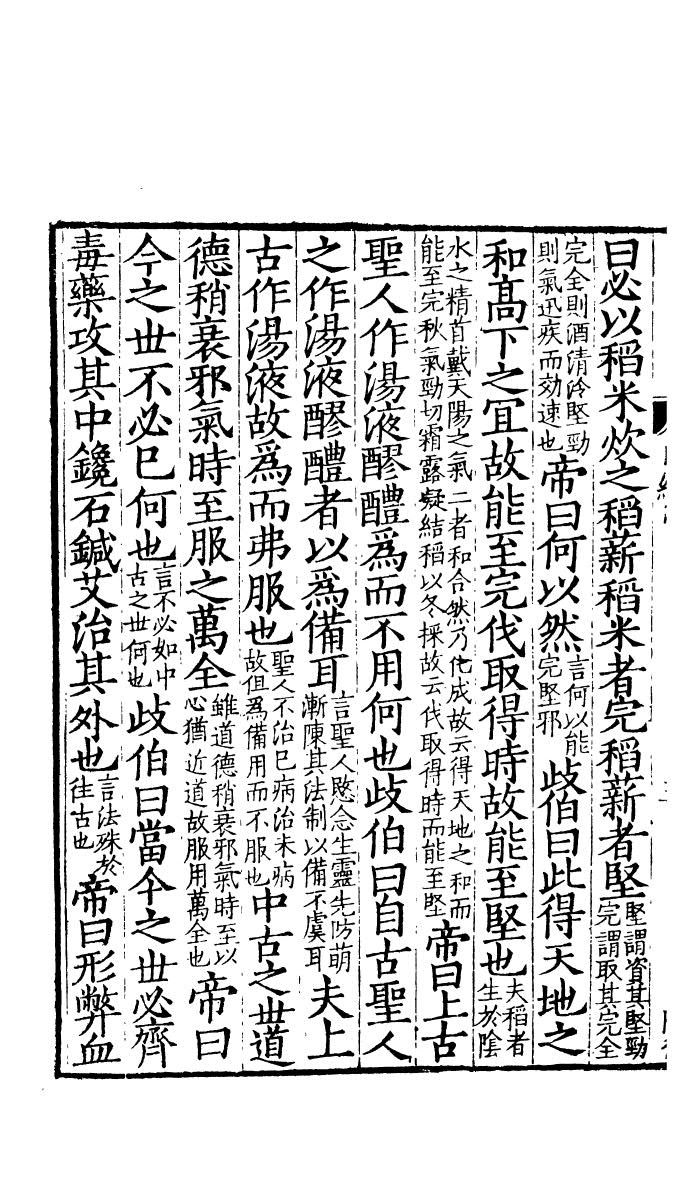 曰必以稻米炊之稻薪稻米者完稻薪者堅堅謂資其堅勁完謂取其完全
完全則酒清泠堅勁則氣迅疾而効速也帝曰何以然言何以能完堅邪歧伯曰此得天地之
和高下之宜故能至完伐取得時故能至堅也夫稻者生於陰
水之精首戴天陽之氣二者和合然乃化成故云得天地之和而能至完秋氣勁切霜露凝結稻以冬採故云伐取得時而能至堅帝曰上古
聖人作湯液醪醴爲而不用何也歧伯曰自古聖人
之作湯液醪醴者以爲備耳言聖人愍念生靈先防萌漸陳其法制以備不虞耳夫上
古作湯液故爲而弗服也聖人不治已病治未病故但爲備用而不服也中古之世道
德稍衰邪氣時至服之萬全雖道德稍衰邪氣時至以心猶近道故服用萬全也帝曰
今之世不必已何也言不必如中古之世何也歧伯曰當今之世必齊
毒藥攻其中鑱石鍼艾治其外也言法殊於往古也帝曰形弊血